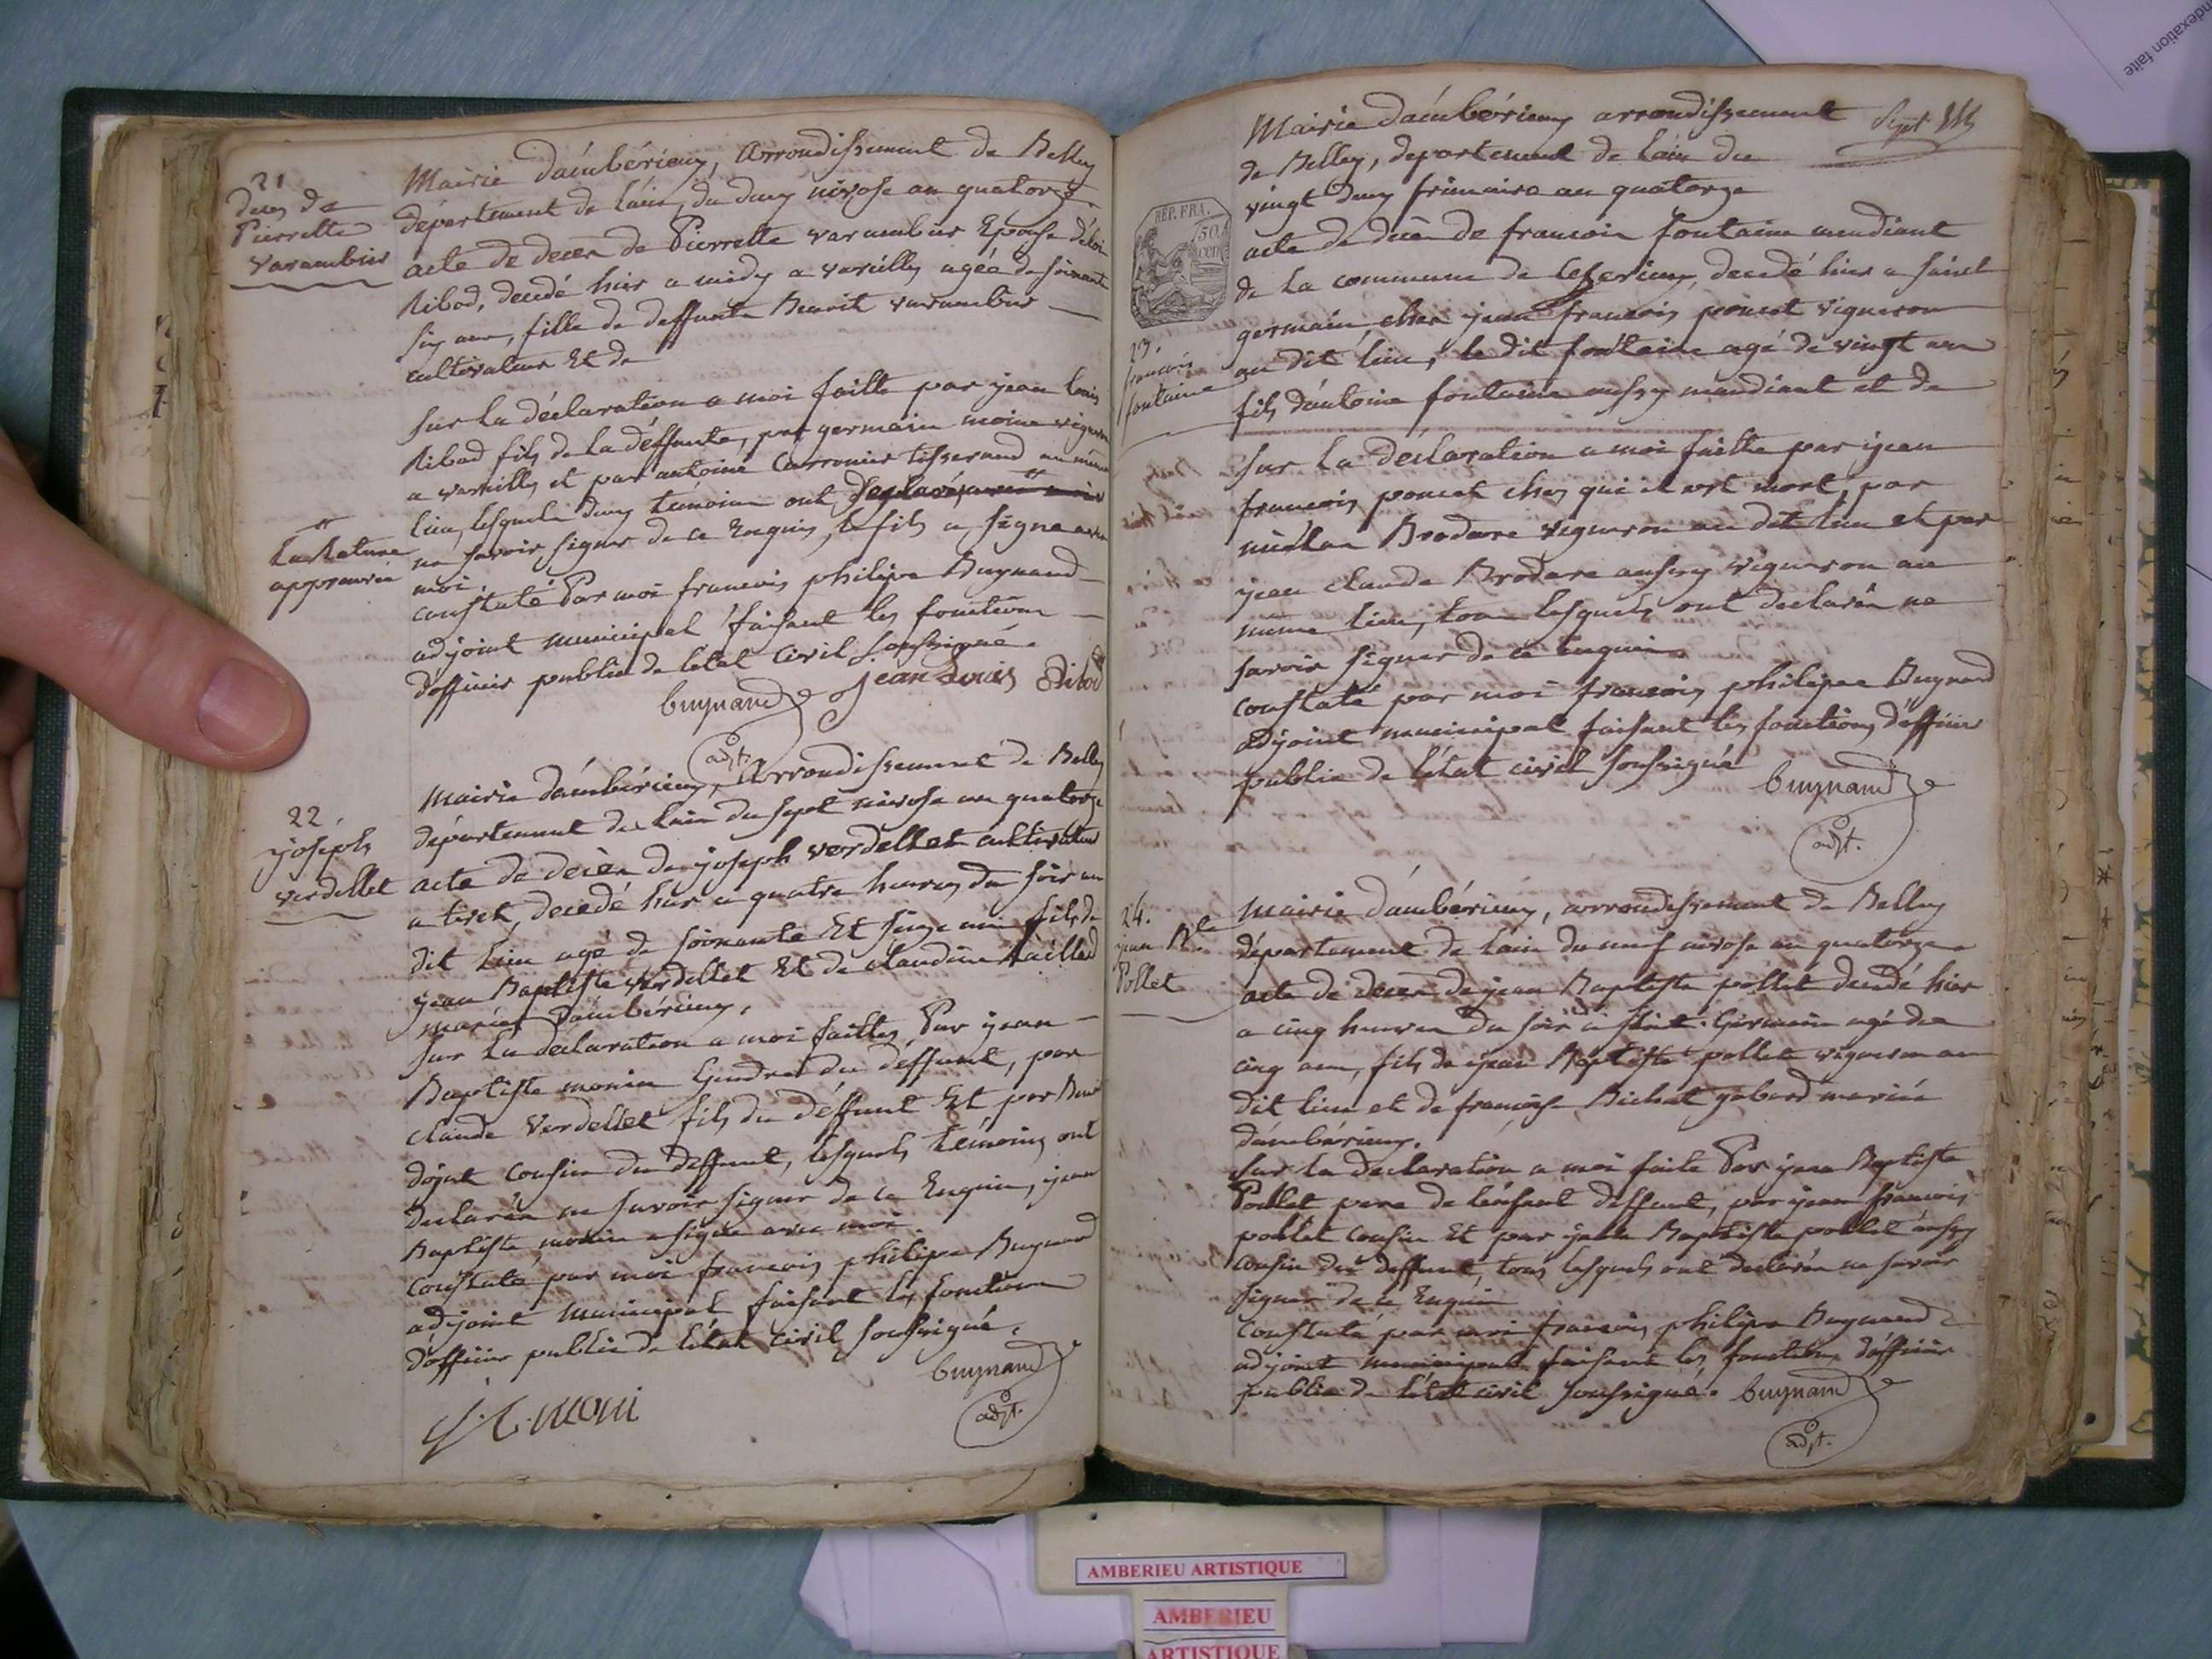 21
deces de
Pierrette
varambier
Mairie d'ambérieux, Arrondissement de Belley
département de lain, du deux nivose an quatorze
acte de deces de Pierrette varambier Epouse d'éloi
Ribod, decedé hier a midy a vareilly agée de soixante
six ans, fille de deffunts Benoit varambier
cultivateur Et de
sur la déclaration a moi faitte par jean louis
Ribod fils de la déffunte, par germain moine vigneron
a vareilly et par antoine Carronier tisserand au même
lieu, lesquels deux temoins ont
ne savoir signer de ce Enquis, le fils a signé avec
moi
La Rature
approuvée
constaté Par moi francois philipe Buynand
adjoint municipal faisant les fonctions
d'officier public de letat Civil soussigné.
buynand jean Louis Ribod
adjt.
22
joseph
verdellet
Mairie d'ambérieux, Arrondissement de Belley
département de lain du sept nivose an quatorze
acte de deces de joseph verdellet cultivateur
a tiret, decedé hier a quatre heures du soir au
dit lieu agé de soixante Et seize ans fils de
jean Baptiste verdellet Et de claudine taillard
mariés d'ambérieux.
sur la declaration a moi faittes Par jean
Baptiste monin Gendre du deffunt, par
claude Verdellet fils du déffunt Et par
cousin du deffunt, lesquels témoins ont
declarés ne savoir signer de ce Enquis, jean
Baptiste monin a signé avec moi
constaté par moi francois philipe Buynand
adjoint municipal faisant les fonctions
d'officier public de létat civil soussigné.
buynand
adjt.
Mairie d'ambérieux arrondissement
de Belley, departement de lain du
vingt deux frimaire an quatorze
REP. FRA.
50.
cen
23.
francois
fontaine
acte de decès de francois fontaine mendiant
de la commune de decedé hier a saint
germain chez jean francois poncet vigneron
au dit lieu, le dit fontaine agé de vingt ans
fils d'antoine fontaine aussy mendiant et de
sur la déclaration a moi faitte par jean
francois poncet chez qui il est mort, par
nicolas Brodare vigneron au dit lieu et par
jean claude Brodare aussy vigneron au
meme lieu, tous lesquels ont declarés ne
savoir signer de ce Enquis
constaté par moi francois philipe Buynand
adjoint municipal faisant les fonctions d'officier
public de l'état civil soussigné
buynand
adjt.
24.
jean Bte
Pollet
Mairie d'ambérieux, arrondissement de Belley
département de lain du neuf nivose an quatorze
acte de deces de jean Baptiste pollet decedé hier
a cinq heures du soir a saint Germain agé de
cinq ans, fils de jean Baptiste pollet vigneron au
dit lieu et de francoise Bichat gabard mariés
d'ambérieux.
sur la declaration a moi faite Par jean Baptiste
Pollet pere de lenfant deffunt, par jean francois
pollet cousin Et par jean Baptiste pollet aussy
cousin du deffunt, tous lesquels ont declarés ne savoir
signer de ce Enquis
Constaté par moi francois philipe Buynand
adjoint municipal faisant les fonctions d'officier
public de l'état civil soussigné. buynand
adjt.
ndexation faite
AMBERIEU ARTISTIQUE
AMBERIEU
ARTISTIQUE